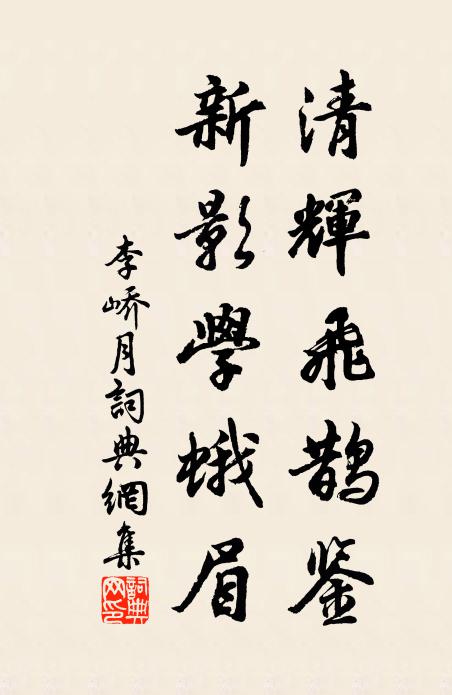 清輝飛鵲鉴
新影學蛾眉
李嶠月詞典網集
詞典网印